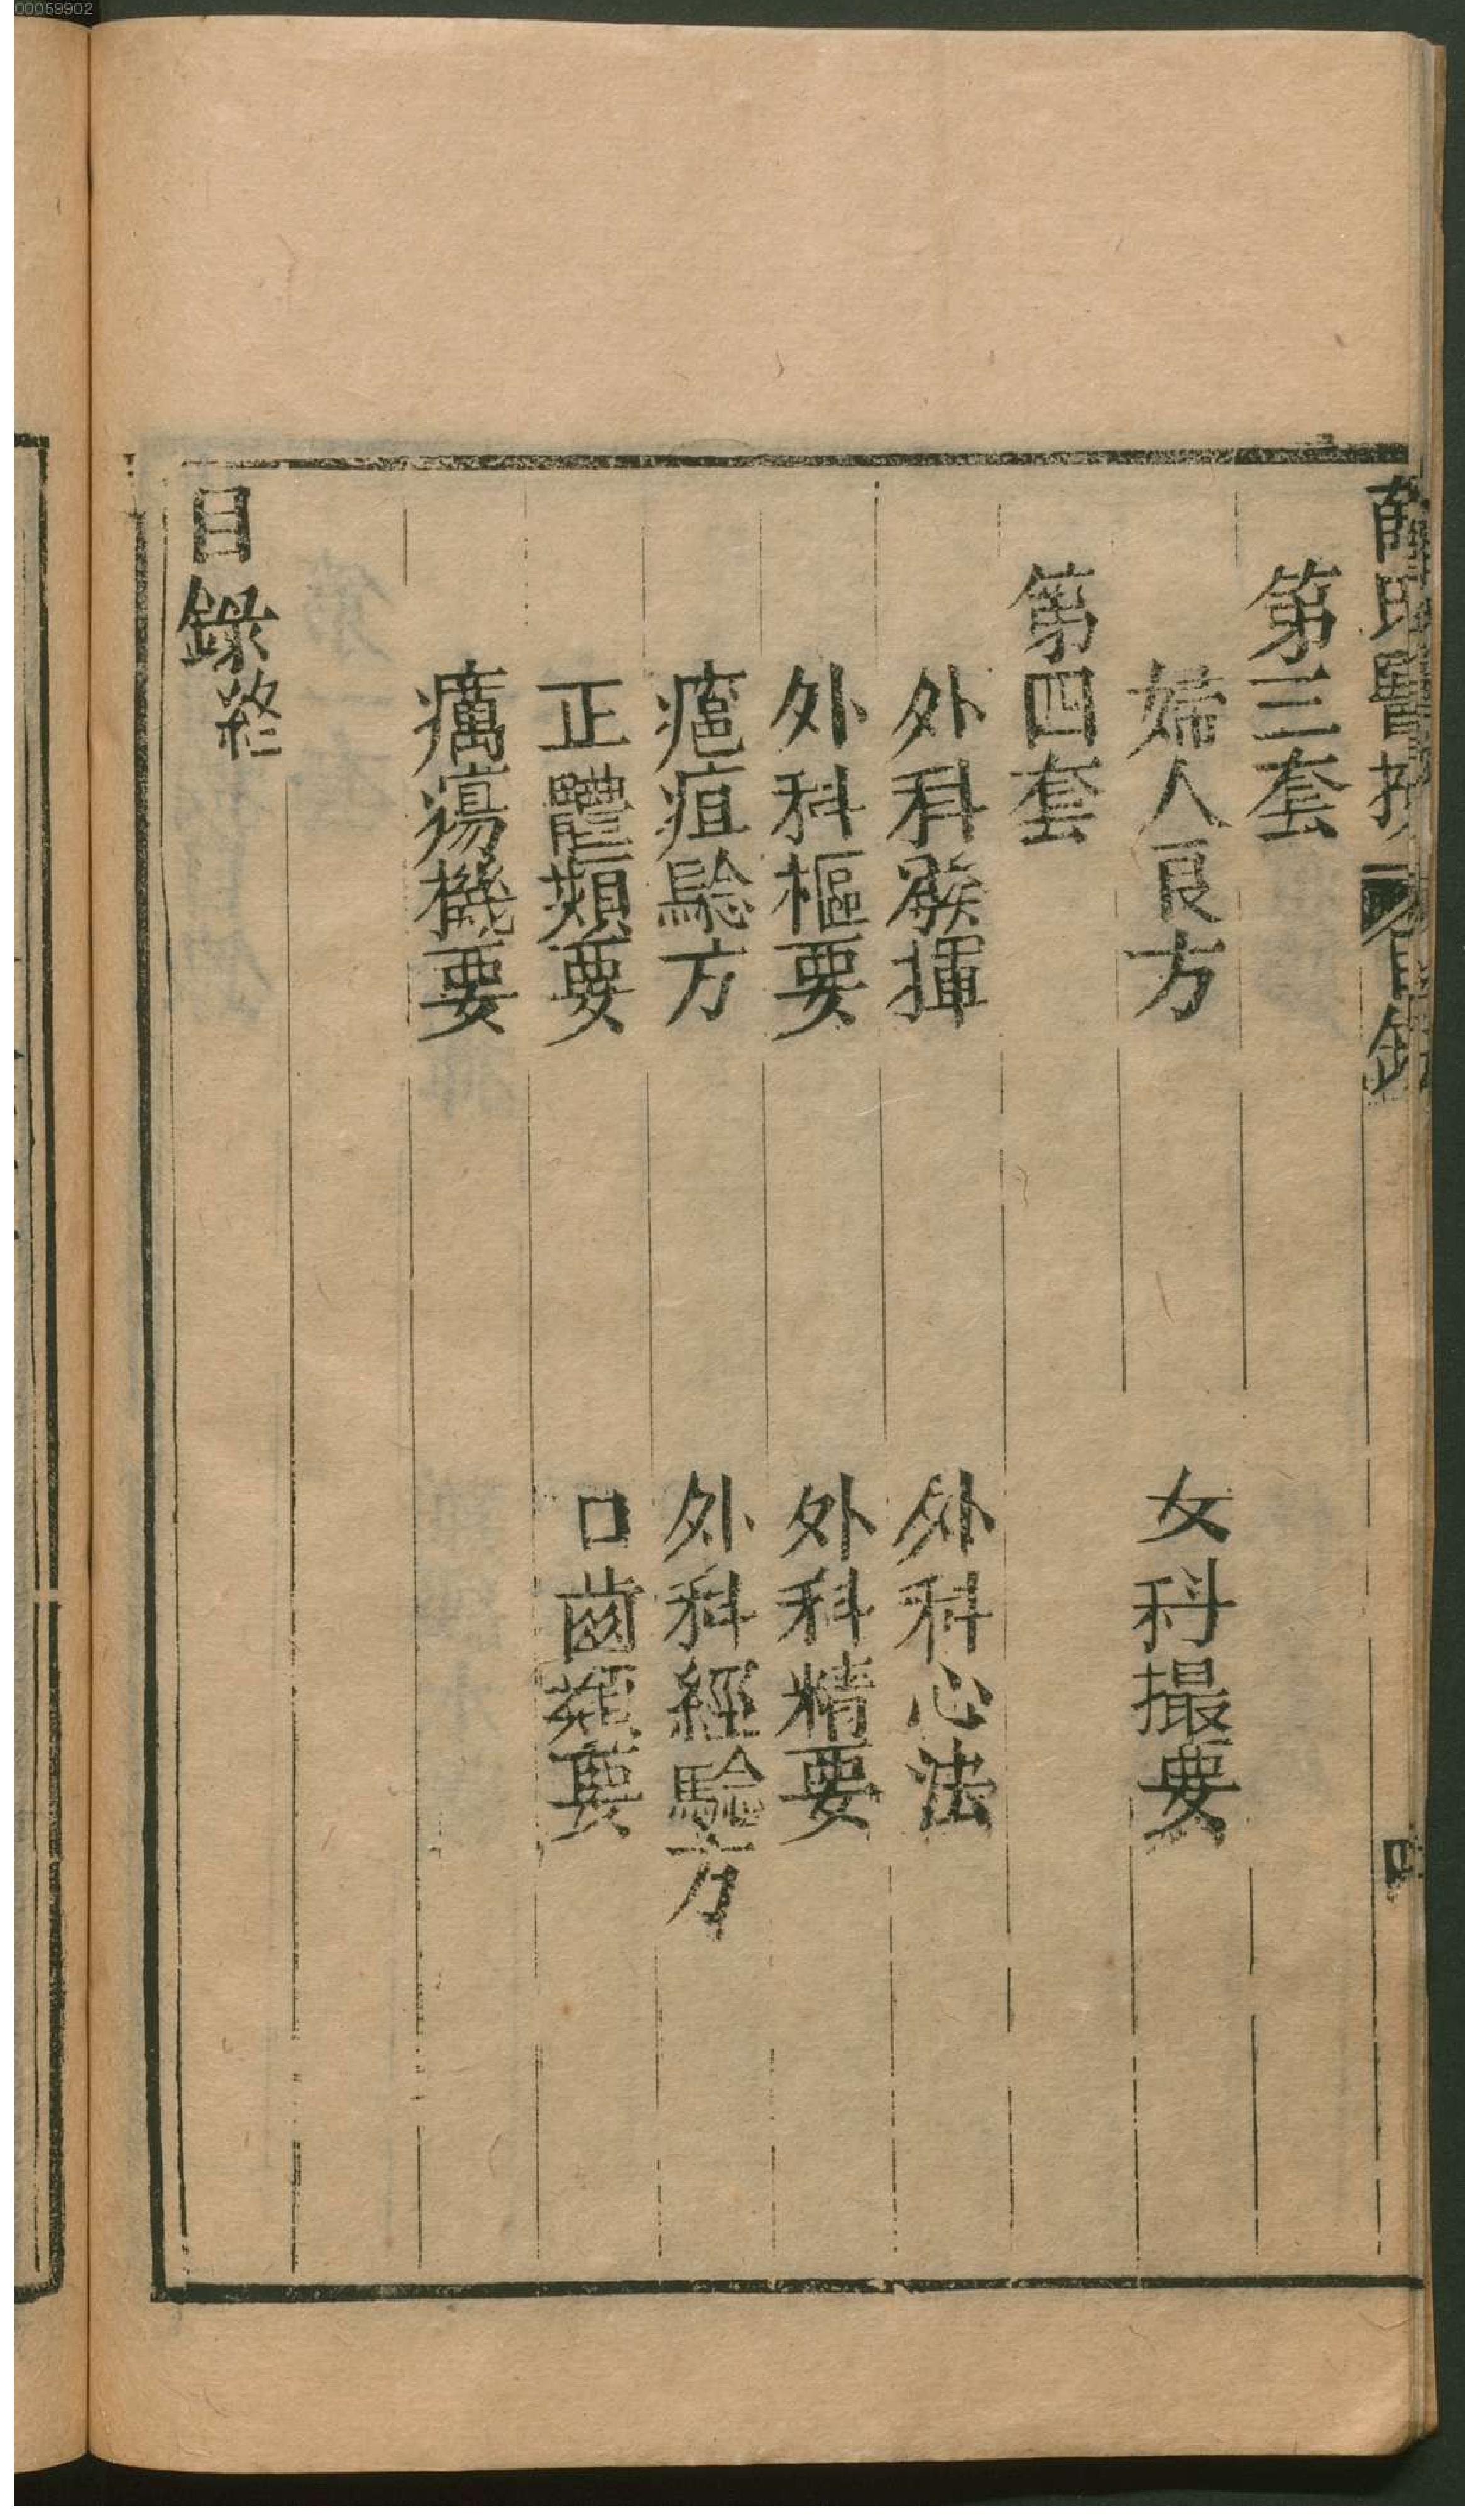 00059902
薛氏醫按 目錄 四
第三套
婦人良方 女科撮要
第四套
外科發揮 外科心法
外科樞要 外科精要
瘡疽驗方 外科經驗方
正體類要 口齒類要
癘瘍機要
目錄終